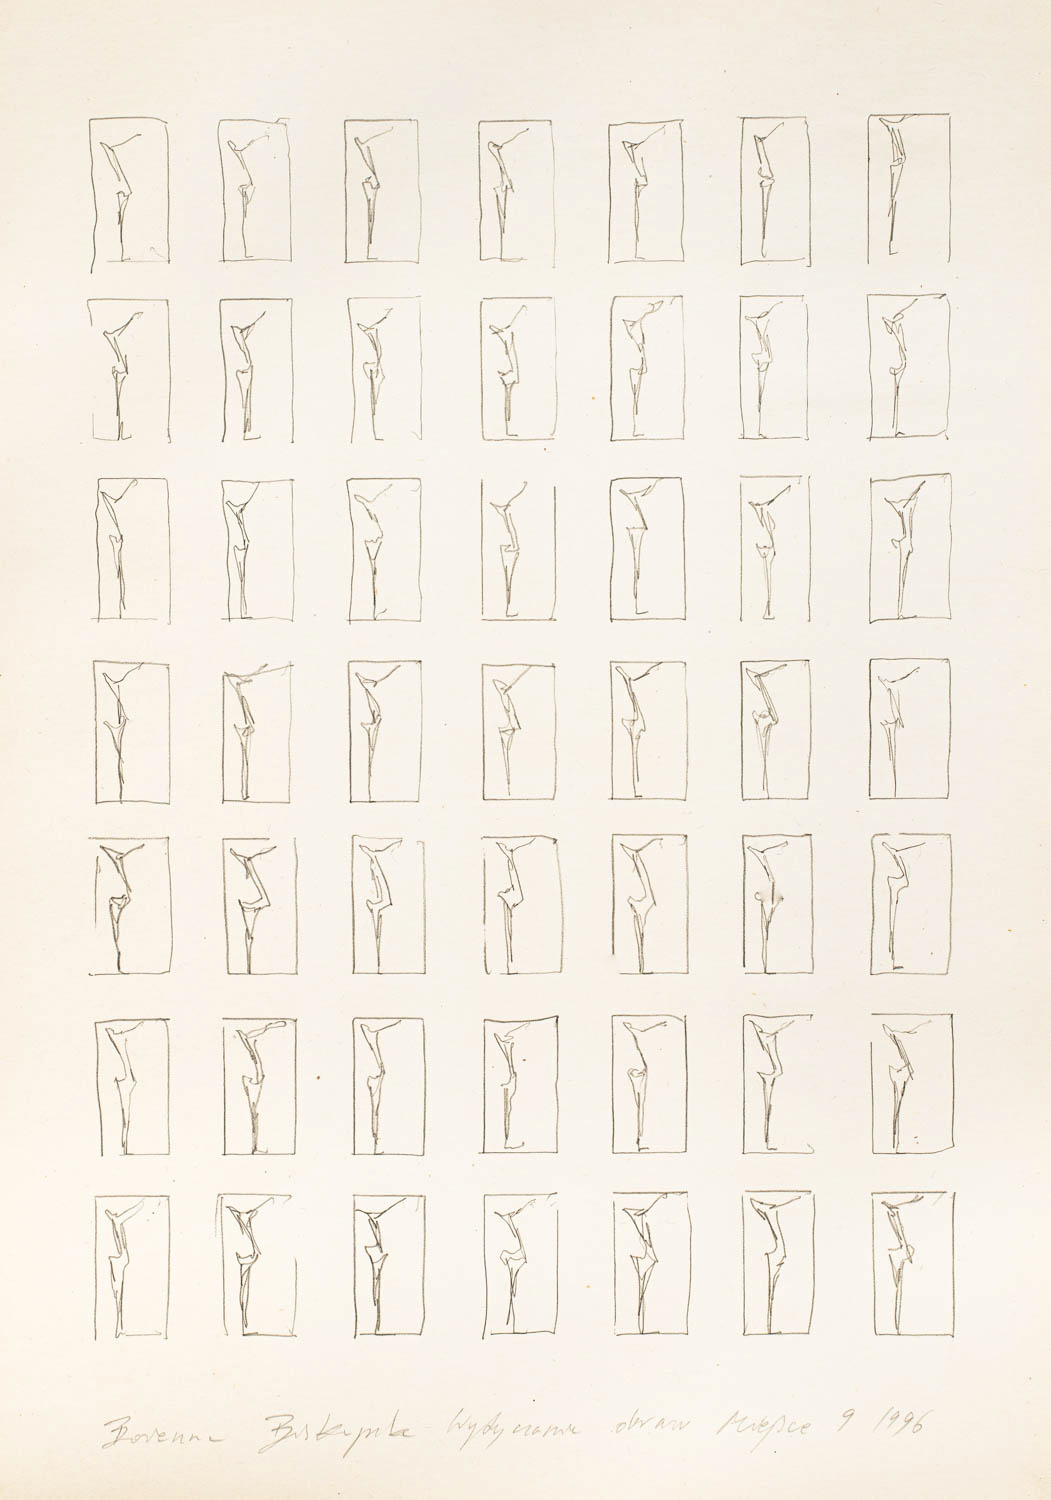 Bożenna Biskupska Wytyczanie obrazu Miejsce 9 1996